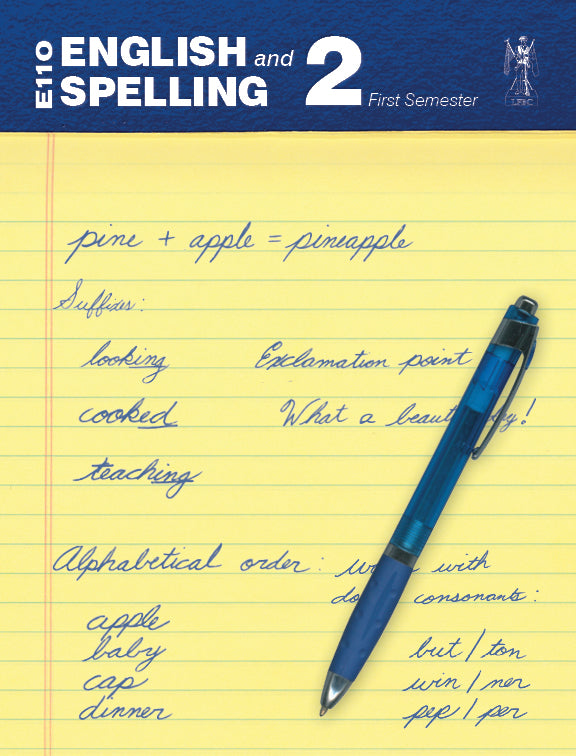 E110 ENGLISH and SPELLING 2
First Semester
LFBC
pine + apple = pineapple
Suffixes:
looking Exclamation point
cooked What a !
teaching
Alphabetical order: with
consonants:
apple
baby but/ton
cap win/ner
dinner pep/per